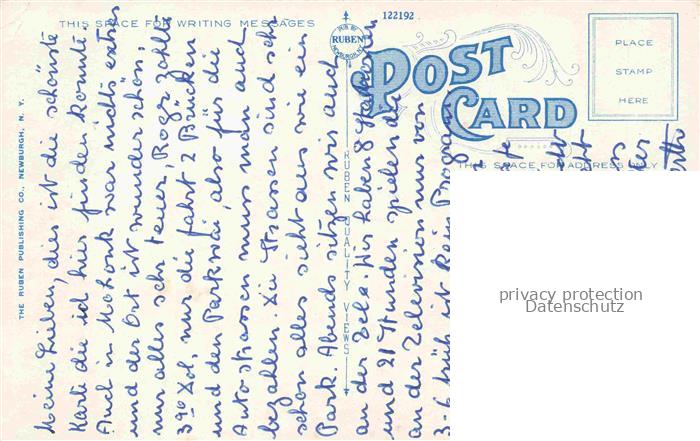 THIS SPACE FOR WRITING MESSAGES
122192
PUB BY
RUBEN
NEWBURGH, N.Y.
POST
CARD
PLACE
STAMP
HERE
THIS SPACE FOR ADDRESS ONLY
THE RUBEN PUBLISHING CO., NEWBURGH, N. Y.
RUBEN QUALITY VIEWS
Meine Lieben, dies ist die schönste
Karte die ich hier finden konnte.
Auch in Mohonk war nichts extras
und der Ort ist wunderschön,
nur alles sehr teuer, Roger zahlte
3 Dol, nur die fahrt 2 Brücken
und den Parkwai, also für die
Autostrassen muss man auch
bezahlen. Die Strassen sind sehr
schön alles sieht aus wie ein
Park. Abends sitzen wir auch
an der Tela. Wir haben 8 Stationen
und 21 Stunden spielen die
an der Television nur von
3-6 früh ist kein Program
privacy protection
Datenschutz